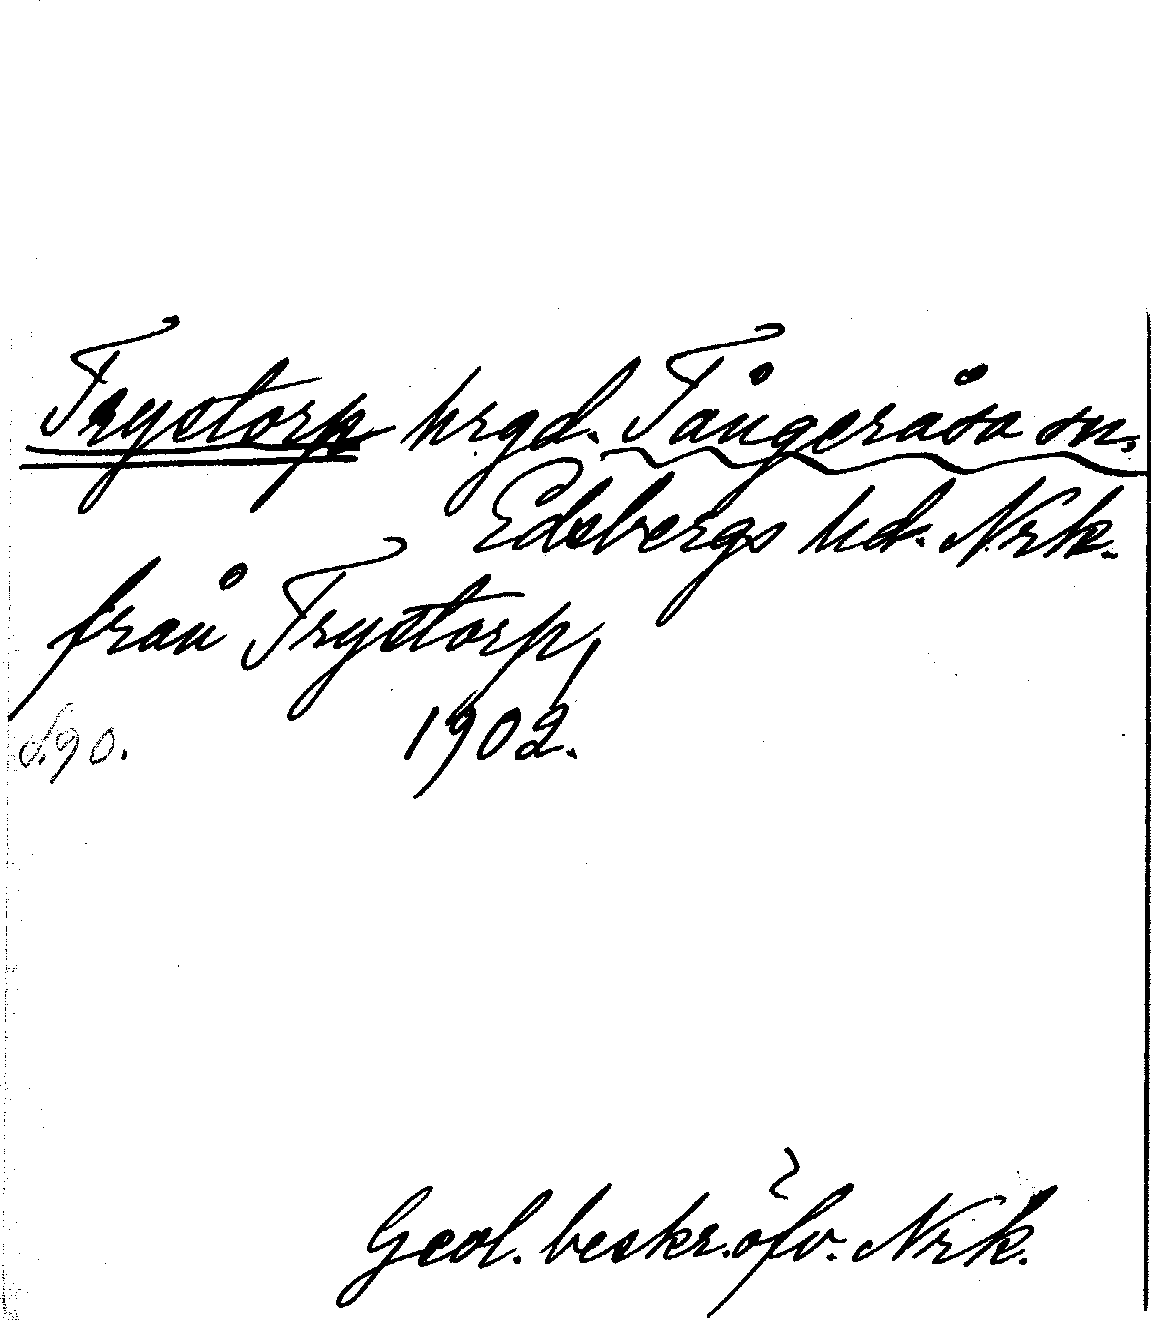 Trystorp hrgd. Tångeråsa sn,
Edsbergs hd. Nrk.
från Trystorp,
d.90. 1902.
Geol. beskr. öfv. Nrk.